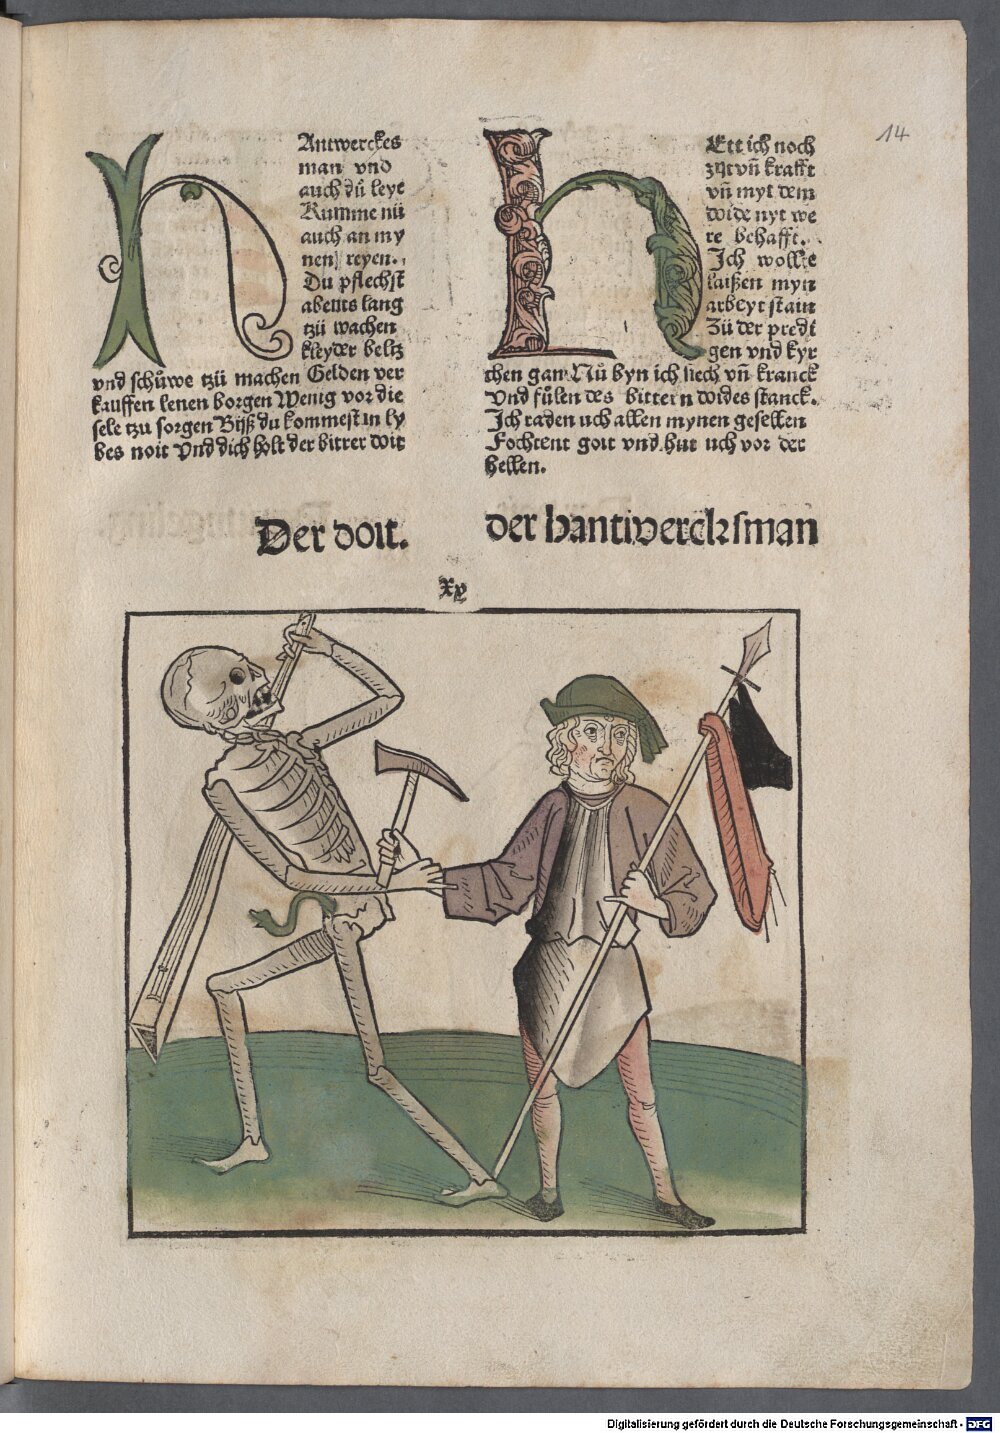 14
HAntwerckes
man vnd
auch dü leye
Kumme nü
auch an my
nen reyen.
Du pflechst
abents lang
tzü wachen
kleyder beltz
vnd schůwe tzü machen Gelden ver
kauffen lenen borgen Wenig vor die
sele tzu sorgen Bijß du kommest in ly
bes noit Vnd dich holt der bitter doit
HEtt ich noch
zijt vñ krafft
vñ myt dem
doide nyt we
re behafft.
Ich wolle
laißen myn
arbeyt stain
Zü der predi
gen vnd kyr
chen gan Nů byn ich siech vñ kranck
Vnd fůlen des bittern doides stanck.
Ich raden uch allen mynen gesellen
Fochtent goit vnd hut uch vor der
hellen.
Der doit.
der hantwercksman
xx
Digitalisierung gefördert durch die Deutsche Forschungsgemeinschaft - DFG